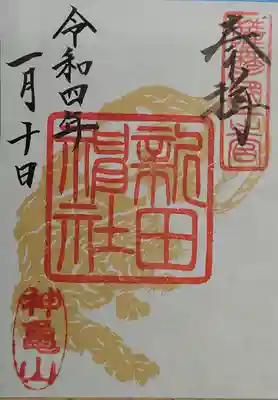 奉拝
新田
神社
令和四年
一月十日
神龜山